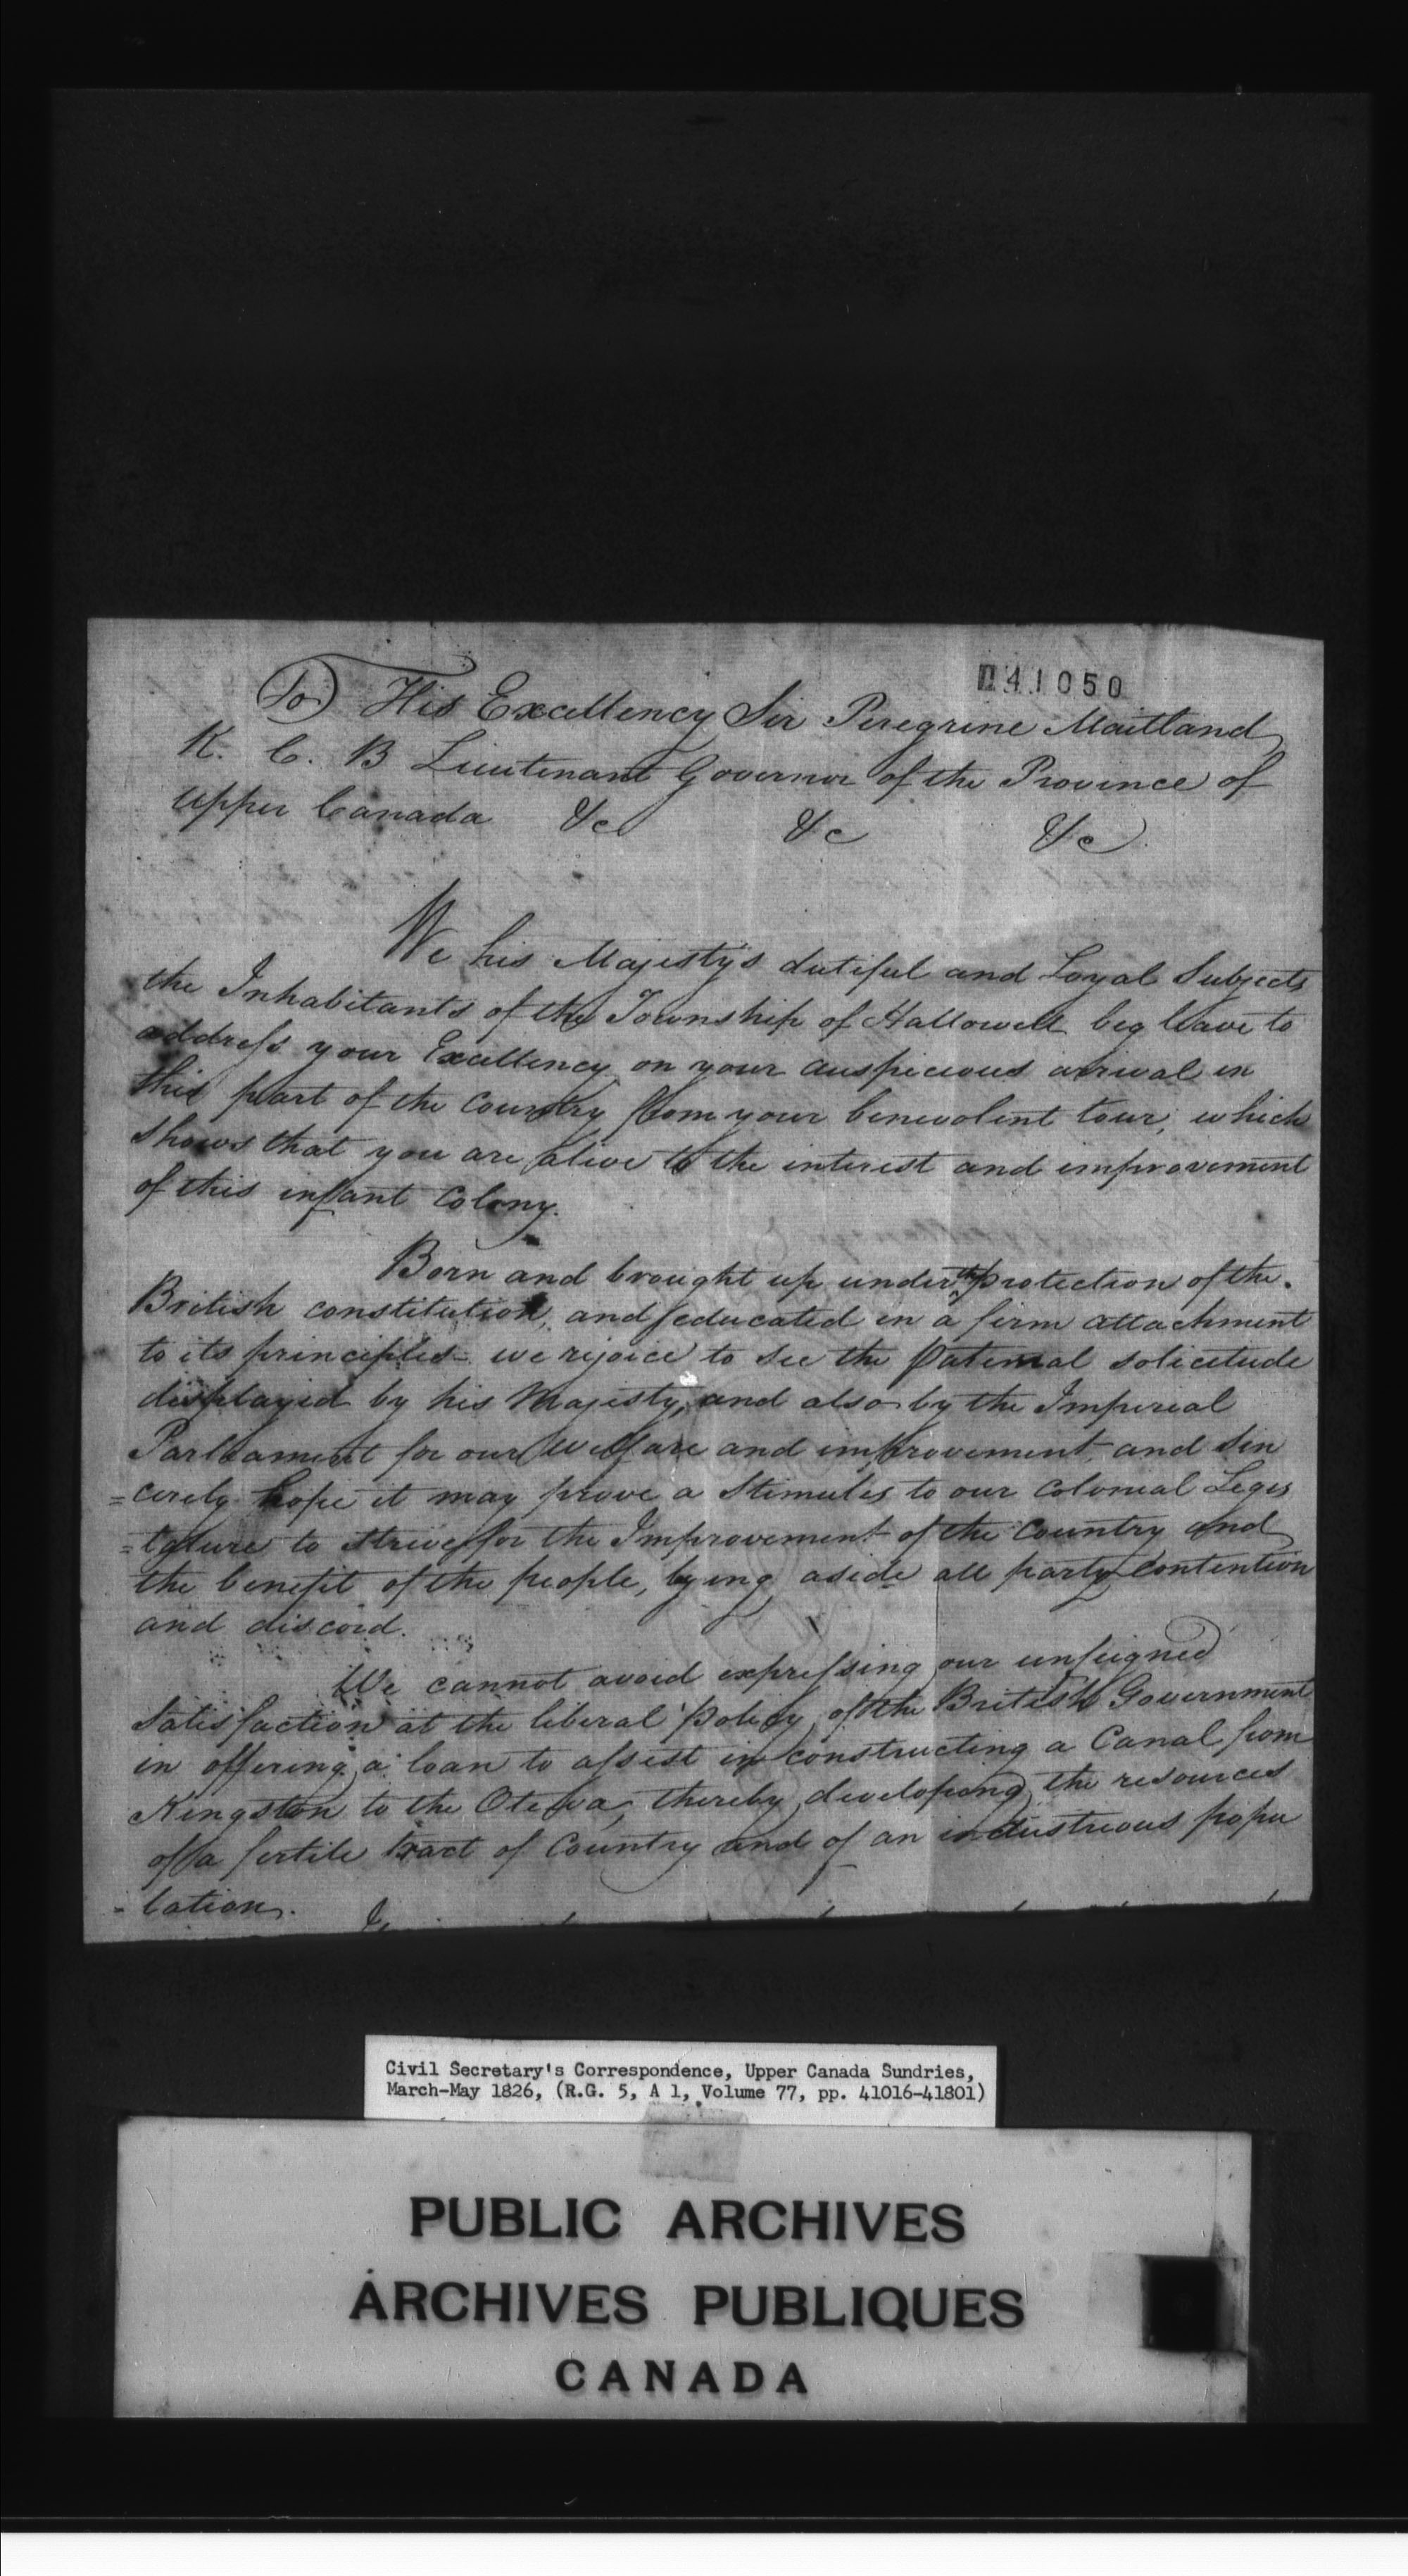 041050
To His Excellency Sir Peregrine Maitland
K. C. B Lieutenant Governor of the Province of
Upper Canada &c &c &c
We his Majesty's dutiful and Loyal Subjects
the Inhabitants of the Township of Hallowell beg leave to
address your Excellency on your auspicious arrival in
this part of the Country from your benevolent tour, which
shows that you are alive to the interest and improvement
of this infant Colony.
Born and brought up under the protection of the
British constitution, and educated in a firm attachment
to its principles - we rejoice to see the Paternal solicitude
displayed by his Majesty, and also by the Imperial
Parliament for our Welfare and improvement, and sin
=cerely hope it may prove a Stimules to our Colonial Legis
=lature to strive for the Improvement of the Country and
the benefit of the people, lying aside all party contention
and discord.
We cannot avoid expressing our unfeigned
Satisfaction at the liberal Policy of the British Government
in offering a loan to assist in constructing a Canal from
Kingston to the Otewa, thereby developing the resources
of a fertile tract of Country and of an industrious popu
-lation.
Civil Secretary's Correspondence, Upper Canada Sundries,
March-May 1826, (R.G. 5, A 1, Volume 77, pp. 41016-41801)
PUBLIC ARCHIVES
ARCHIVES PUBLIQUES
CANADA